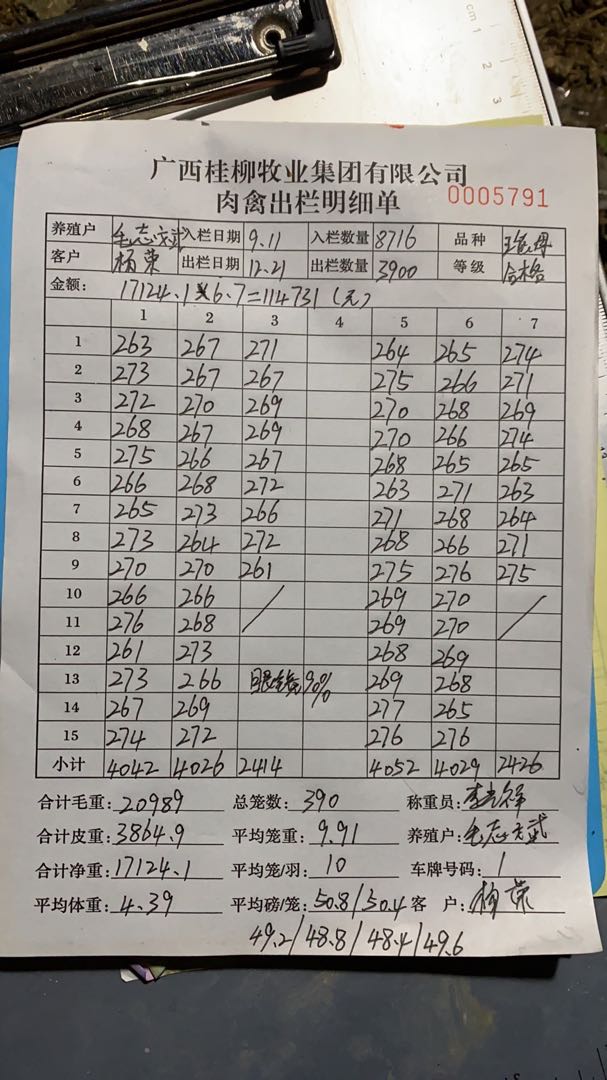 cm 1 2 3
广西桂柳牧业集团有限公司
肉禽出栏明细单 0005791
养殖户 入栏日期 9.11 入栏数量 8716 品种
客户 杨荣 出栏日期 12.21 出栏数量 3900 等级 合格
金额: 17124.1×6.7=114731(元)
1 2 3 4 5 6 7
1 263 267 271 264 265 274
2 273 267 267 275 266 271
3 272 270 269 270 268 269
4 268 267 269 270 266 274
5 275 266 267 268 265 265
6 266 268 272 263 271 263
7 265 273 266 271 268 264
8 273 264 272 268 266 271
9 270 270 261 275 276 275
10 266 266 / 269 270 /
11 276 268 269 270
12 261 273 268 269
13 273 266 90% 269 268
14 267 269 277 265
15 274 272 276 276
小计 4042 4026 2414 4052 4029 2426
合计毛重: 20989 总笼数: 390 称重员:
合计皮重: 3864.9 平均笼重: 9.91 养殖户:
合计净重: 17124.1 平均笼/羽: 10 车牌号码: 1
平均体重: 4.39 平均磅/笼: 50.8/50.4 客 户: 杨荣
49.2/48.8/48.4/49.6